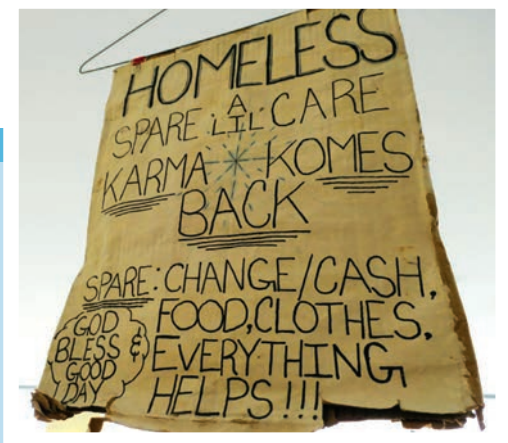 HOMELESS
SPARE A LIL' CARE
KARMA KOMES
BACK
SPARE: CHANGE/CASH,
FOOD, CLOTHES,
EVERYTHING
HELPS!!!
GOD
BLESS &
GOOD
DAY